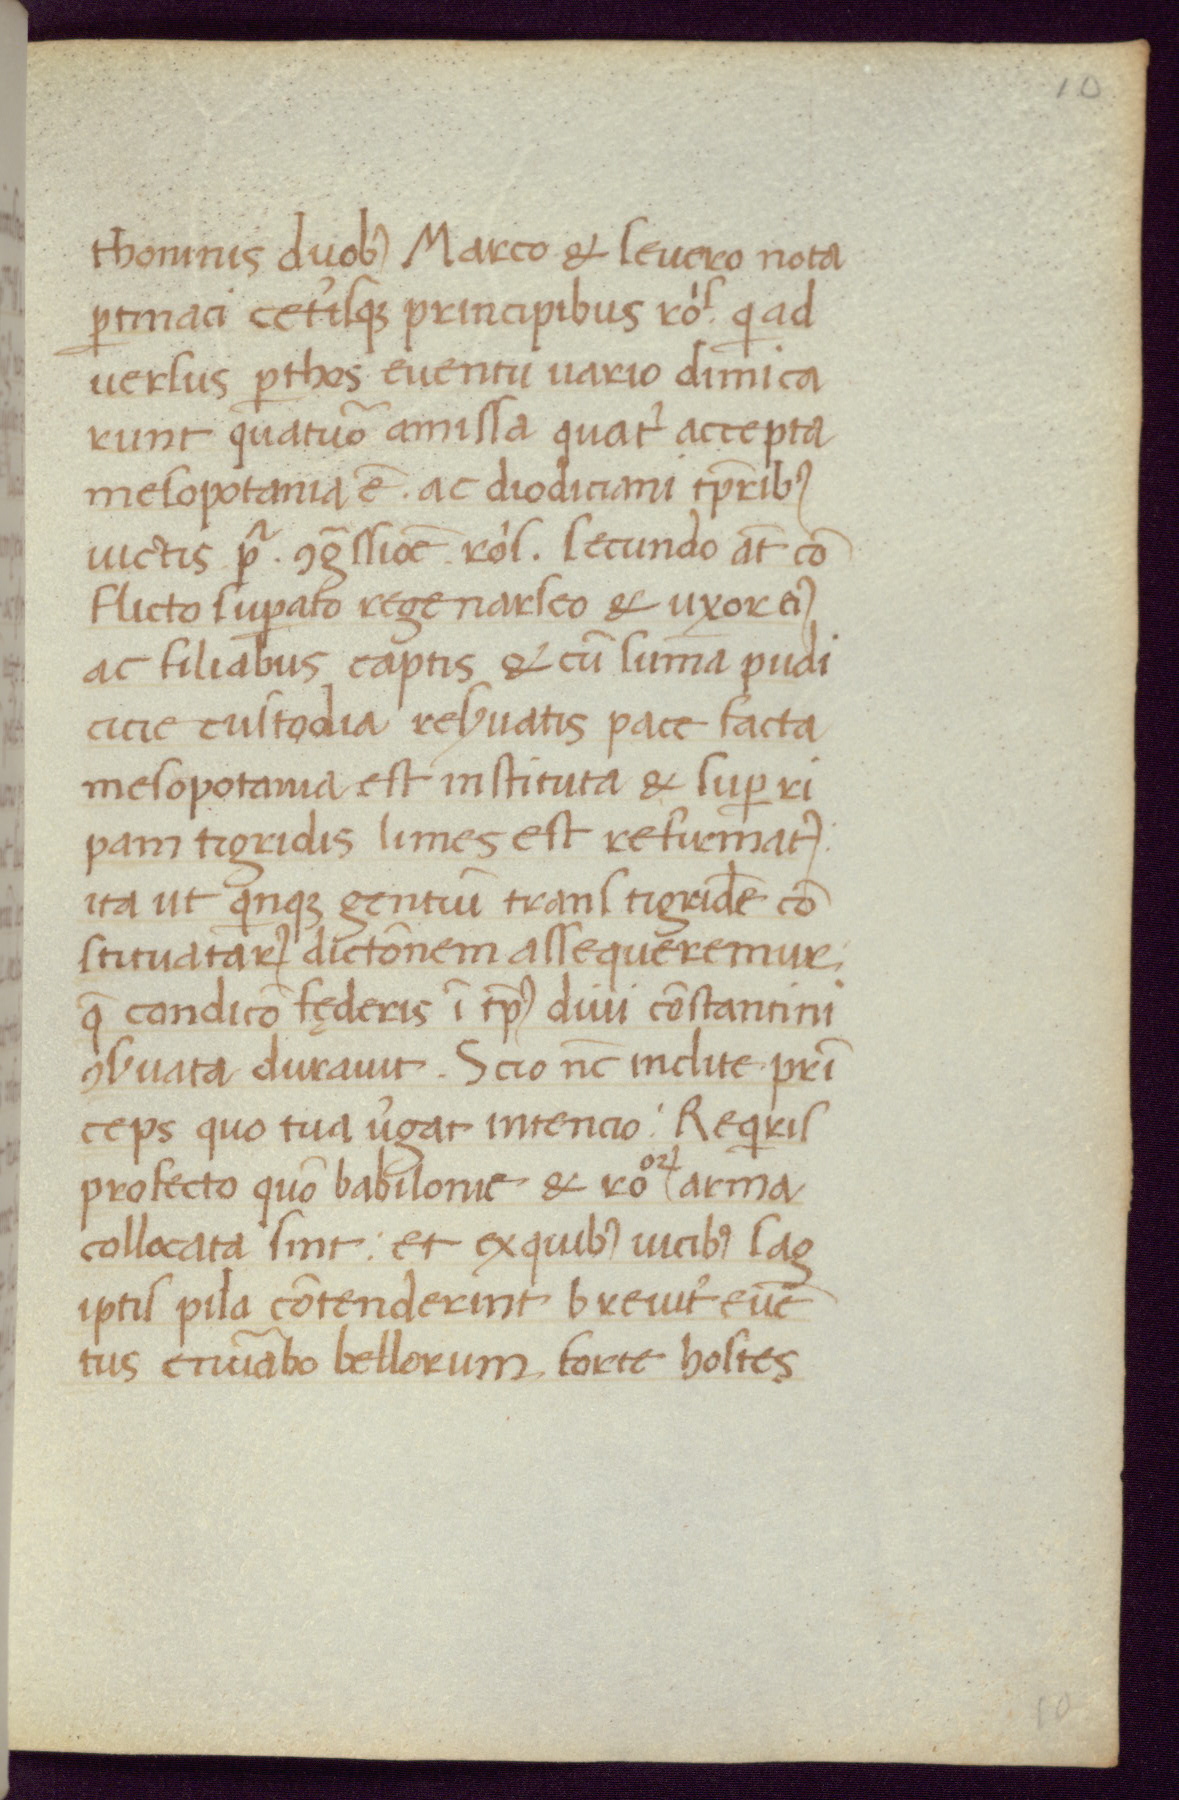 10
thoninis duobꝰ Marco & seuero nota
ꝑtinaci cet͛isqꝫ principibus ro͛s. q̇ ad
uersus ꝑthos euentu uario dimica
runt quatuō amissa quat͛ accepta
mesopotania ē. ac diodiciani tp̄ribꝰ
uictis pͣ. ꝯg̃ssiōe ro͛s. secundo at̄ cō
flicto suꝑato rege narseo & uxor eiꝰ
ac filiabus captis & cū sūma pudi
cicie custodia res͛uatis pace facta
mesopotania est instituta & suꝑ ri
pam tigridis limes est refirmatꝰ.
ita ut q̇nqꝫ gentiū trans tigridē cō
stituataꝝ dictōnem assequeremur.
q̄ condicō fęderis ī tp̄ꝰ diui cōstantini
ꝯs͛uata durauit. Scio nc̄ inclite prī
ceps quo tua u͛gat intencio: Req̇ris
profecto quō babilonie & roꝝ arma
collocata sint: et ex quibꝰ uicibꝰ sag
iptis pila cōtenderint breuit͛ euē
tus bellorum forte hostes
10